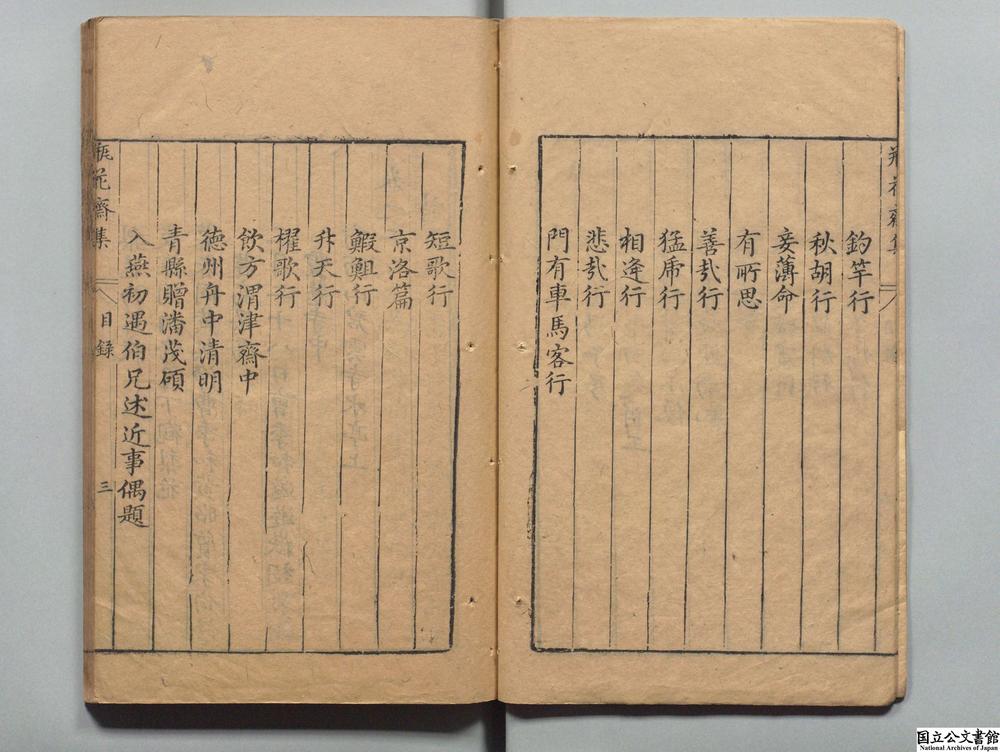 釣竿行
秋胡行
妾薄命
有所思
善哉行
猛虎行
相逢行
悲哉行
門有車馬客行
短歌行
京洛篇
鰕䱇行
升天行
櫂歌行
飲方渭津齋中
德州舟中清明
青縣贈潘茂碩
入燕初遇伯兄述近事偶題
瓶花齋集
目錄
三
国立公文書館
National Archives of Japan